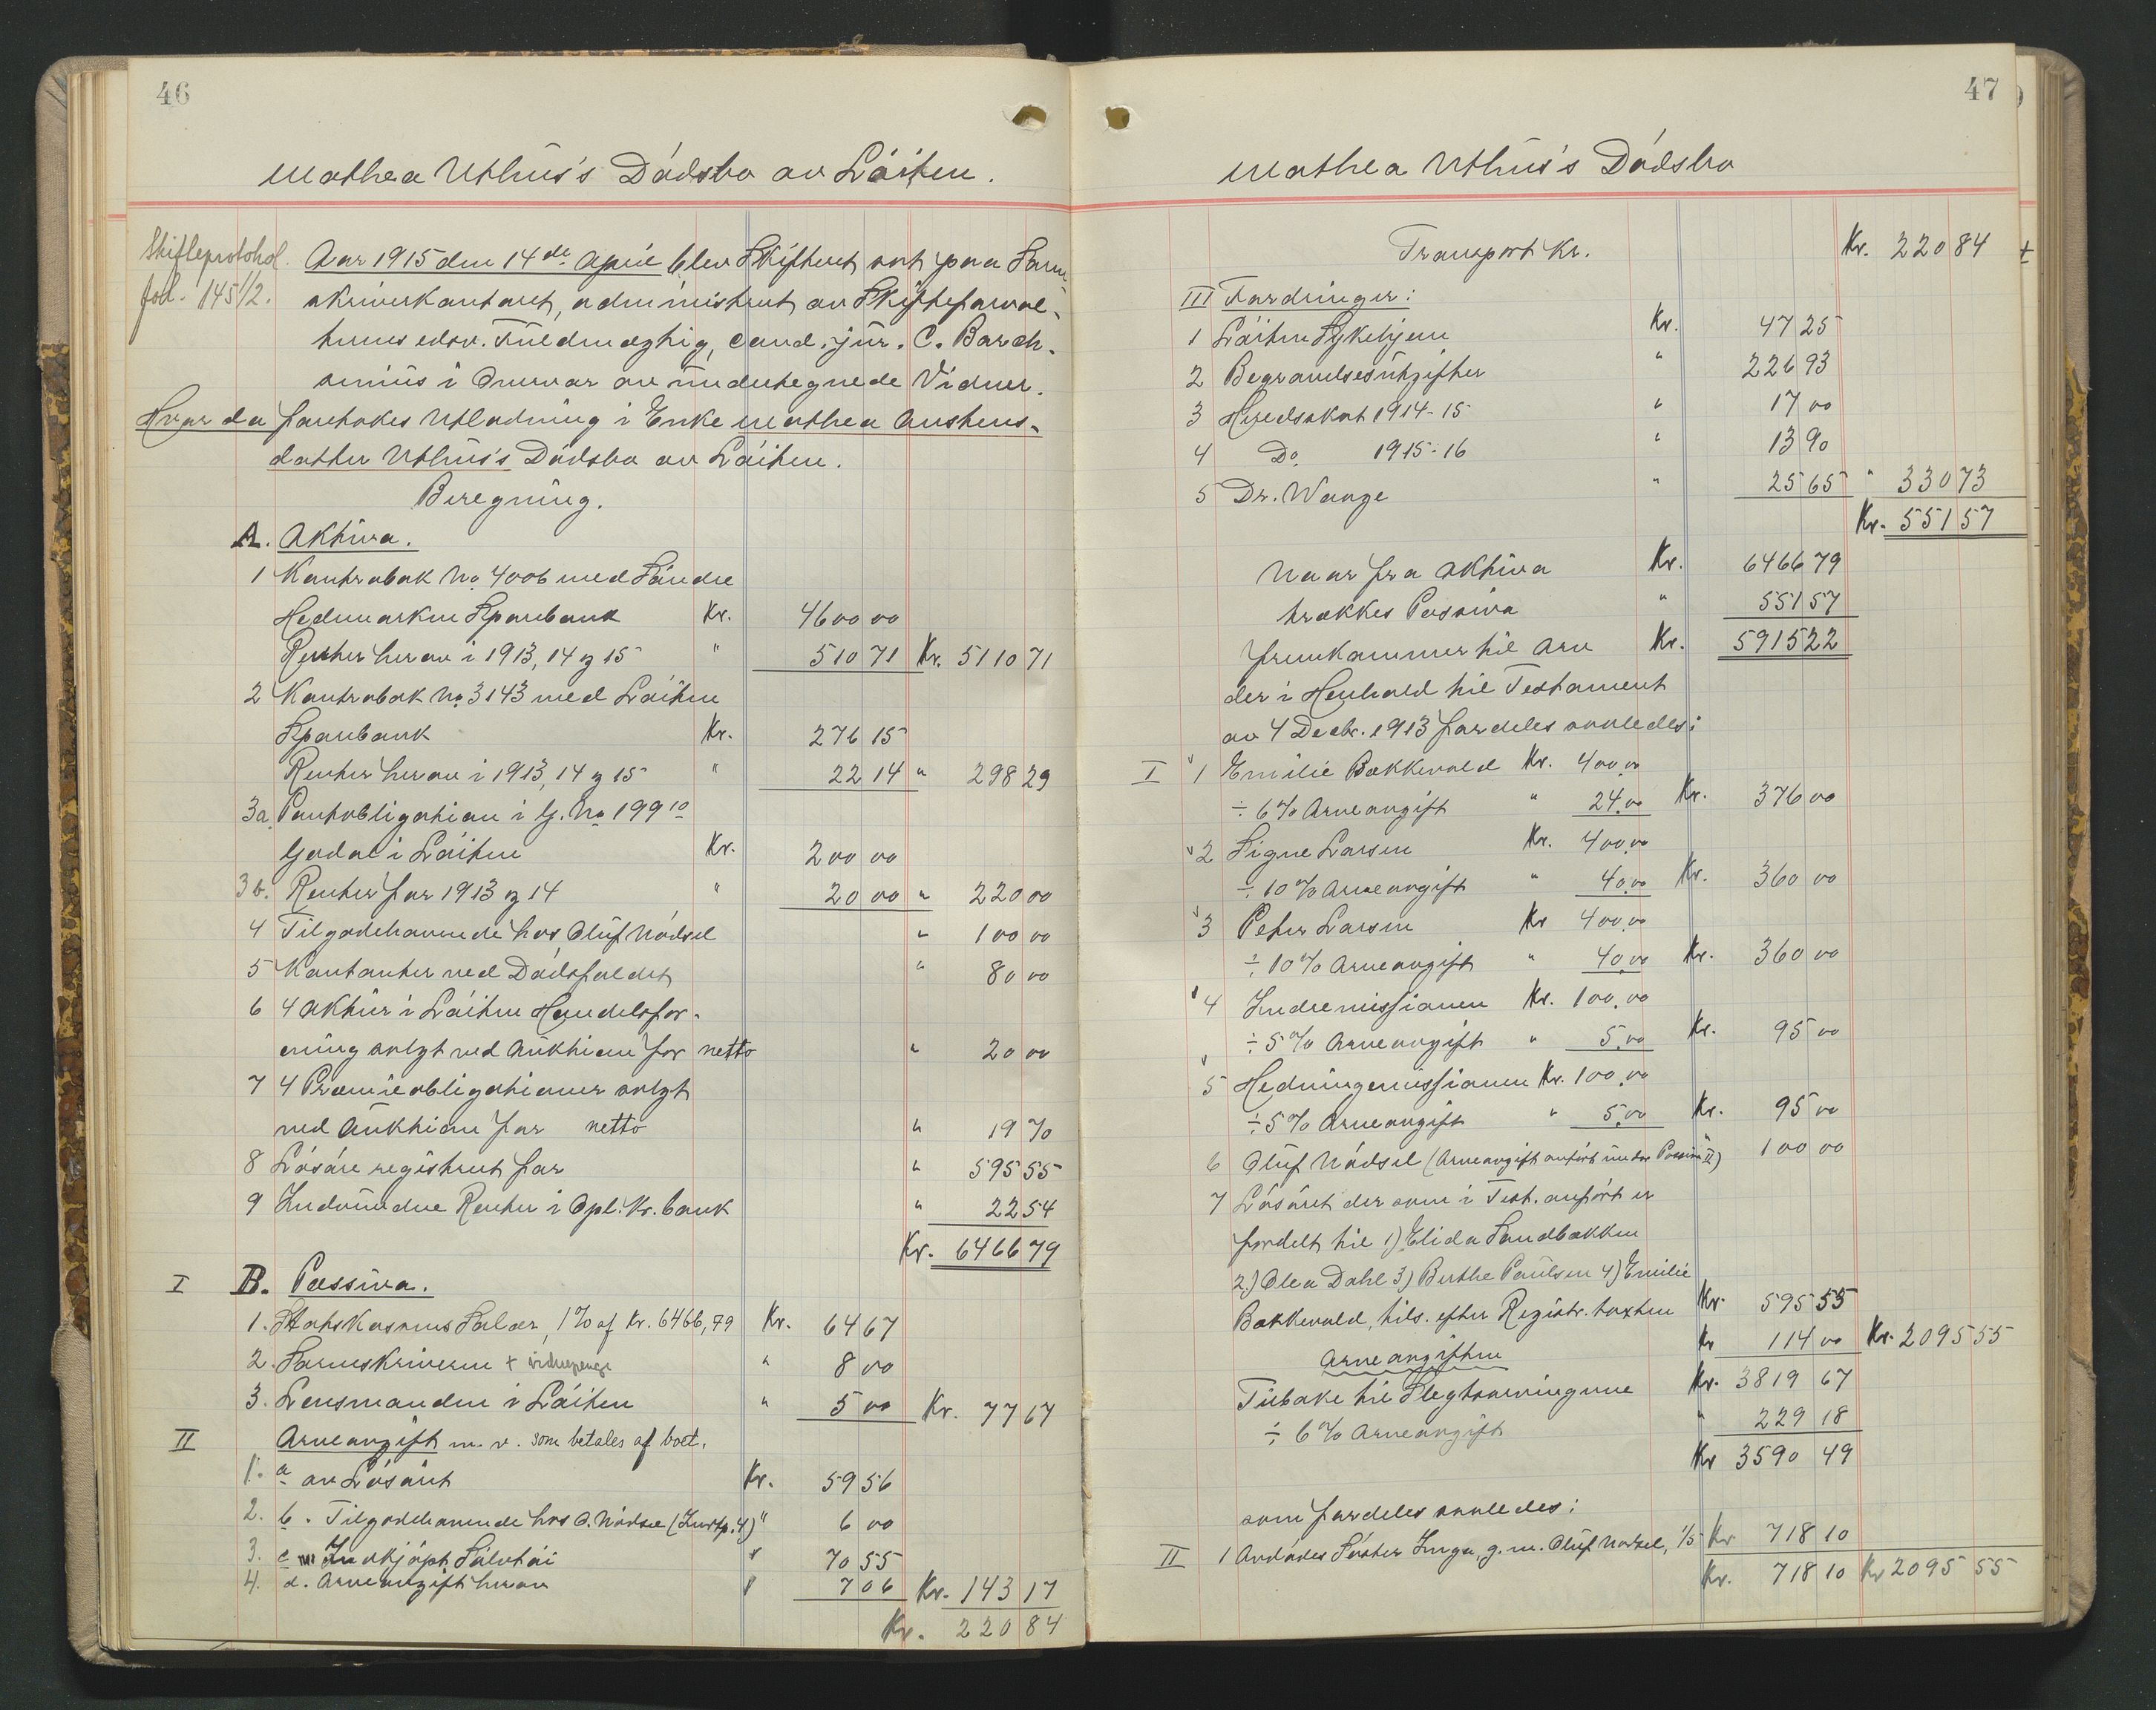 46
Mathea Uthus's Dødsbo av Løiten.
Skifteprotokol
fol. 145 1/2.
Aar 1915 den 14de April blev Skifteret sat paa Soren-
skriverkontoret, administrert av Skifteforval-
terens edsv. Fuldmægtig, cand. jur. C. Barch-
senius i Overvær av undertegnede Vidner.
Hvor da foretokes Utlodning i Enke Mathea Austens-
datter Uthus's Dødsbo av Løiten.
Beregning.
A. Aktiva.
1 Kontrabok No 4006 med Søndre
Hedmarken Sparebank Kr. 4600 00
Renter herav i 1913, 14 og 15 " 510 71 Kr. 5110 71
2 Kontrabok No 3143 med Løiten
Sparebank Kr. 276 15
Renter herav i 1913, 14 og 15 " 22 14 " 298 29
3a. Pantobligation i G. No 199 10
Godal i Løiten Kr. 200 00
3b. Renter for 1913 og 14 " 20 00 " 220 00
4 Tilgodehavende hos Oluf Nødsel " 100 00
5 Kontanter ved Dødsfaldet " 80 00
6 4 Aktier i Løiten Handelsfor-
ening solgt ved Auktion for netto " 20 00
7 4 Præmieobligationer solgt
ved Auktion for netto " 19 70
8 Løsøre registrert for " 595 55
9 Indvundne Renter i Opl. Kr. bank " 22 54
Kr. 6466 79
I B. Passiva.
1. Statskassens Salær, 1% af Kr. 6466,79 Kr. 64 67
2. Sorenskriveren + vidnepenge " 8 00
3. Lensmanden i Løiten " 5 00 Kr. 77 67
II Arveavgift m. v. som betales af boet.
1. a av Løsøret Kr. 59 56
2. b. Tilgodehavende hos O. Nødsel (Indtp. 4) " 6 00
3. c Indkjøpt Sølvtøi " 70 55
4. d. Arveavgift herav " 7 06 Kr. 143 17
Kr. 220 84
47
Mathea Uthus's Dødsbo
Transport Kr. Kr. 220 84 +
III Fordringer:
1 Løiten Sykehjem Kr. 47 25
2 Begravelsesutgifter " 226 93
3 Heredsskat 1914-15 " 17 00
4 Do. 1915-16 " 13 90
5 Dr. Wange " 25 65 " 330 73
Kr. 551 57
Naar fra Aktiva Kr. 6466 79
trækkes Passiva " 551 57
fremkommer til Arv Kr. 5915 22
der i Henhold til Testament
av 4 Decbr. 1913 fordeles saaledes:
I 1 Emilie Bakkevold Kr. 400,00
÷ 6% Arveavgift " 24,00 Kr. 376 00
2 Signe Larsen Kr. 400,00
÷ 10% Arveavgift " 40,00 Kr. 360 00
3 Peter Larsen Kr 400,00
÷ 10% Arveavgift " 40,00 Kr. 360 00
4 Indremissionen Kr. 100,00
÷ 5% Arveavgift " 5,00 Kr. 95 00
5 Hedningemissionen Kr. 100,00
÷ 5% Arveavgift " 5,00 Kr. 95 00
6 Oluf Nødsel (Arveavgift anført under Passiva II) 100 00
7 Løsøret der som i Test. anført er
fordelt til 1) Elida Sandbakken
2.) Olea Dahl 3) Berthe Paulsen 4) Emilie
Bakkevold, tils. efter Registr. taxten Kr. 595 55
Arveavgiften Kr 114 00 Kr. 2095 55
Tilbake til Slegtsarvingerne Kr. 3819 67
÷ 6% Arveavgift " 229 18
Kr 3590 49
som fordeles saaledes:
II 1 Avdødes Søster Inga, g. m. Oluf Nødsel, 1/5 Kr 718 10
Kr. 718 10 Kr 2095 55